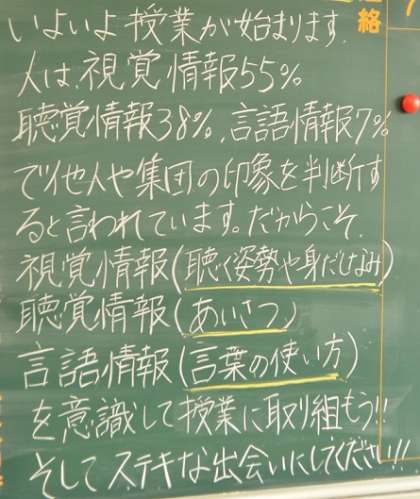 いよいよ授業が始まります。
人は、視覚情報55%
聴覚情報38%、言語情報7%
で他人や集団の印象を判断す
ると言われています。だからこそ、
視覚情報(聴く姿勢や身だしなみ)
聴覚情報(あいさつ)
言語情報(言葉の使い方)
を意識して授業に取り組もう!!
そしてステキな出会いにしてください!!
絡